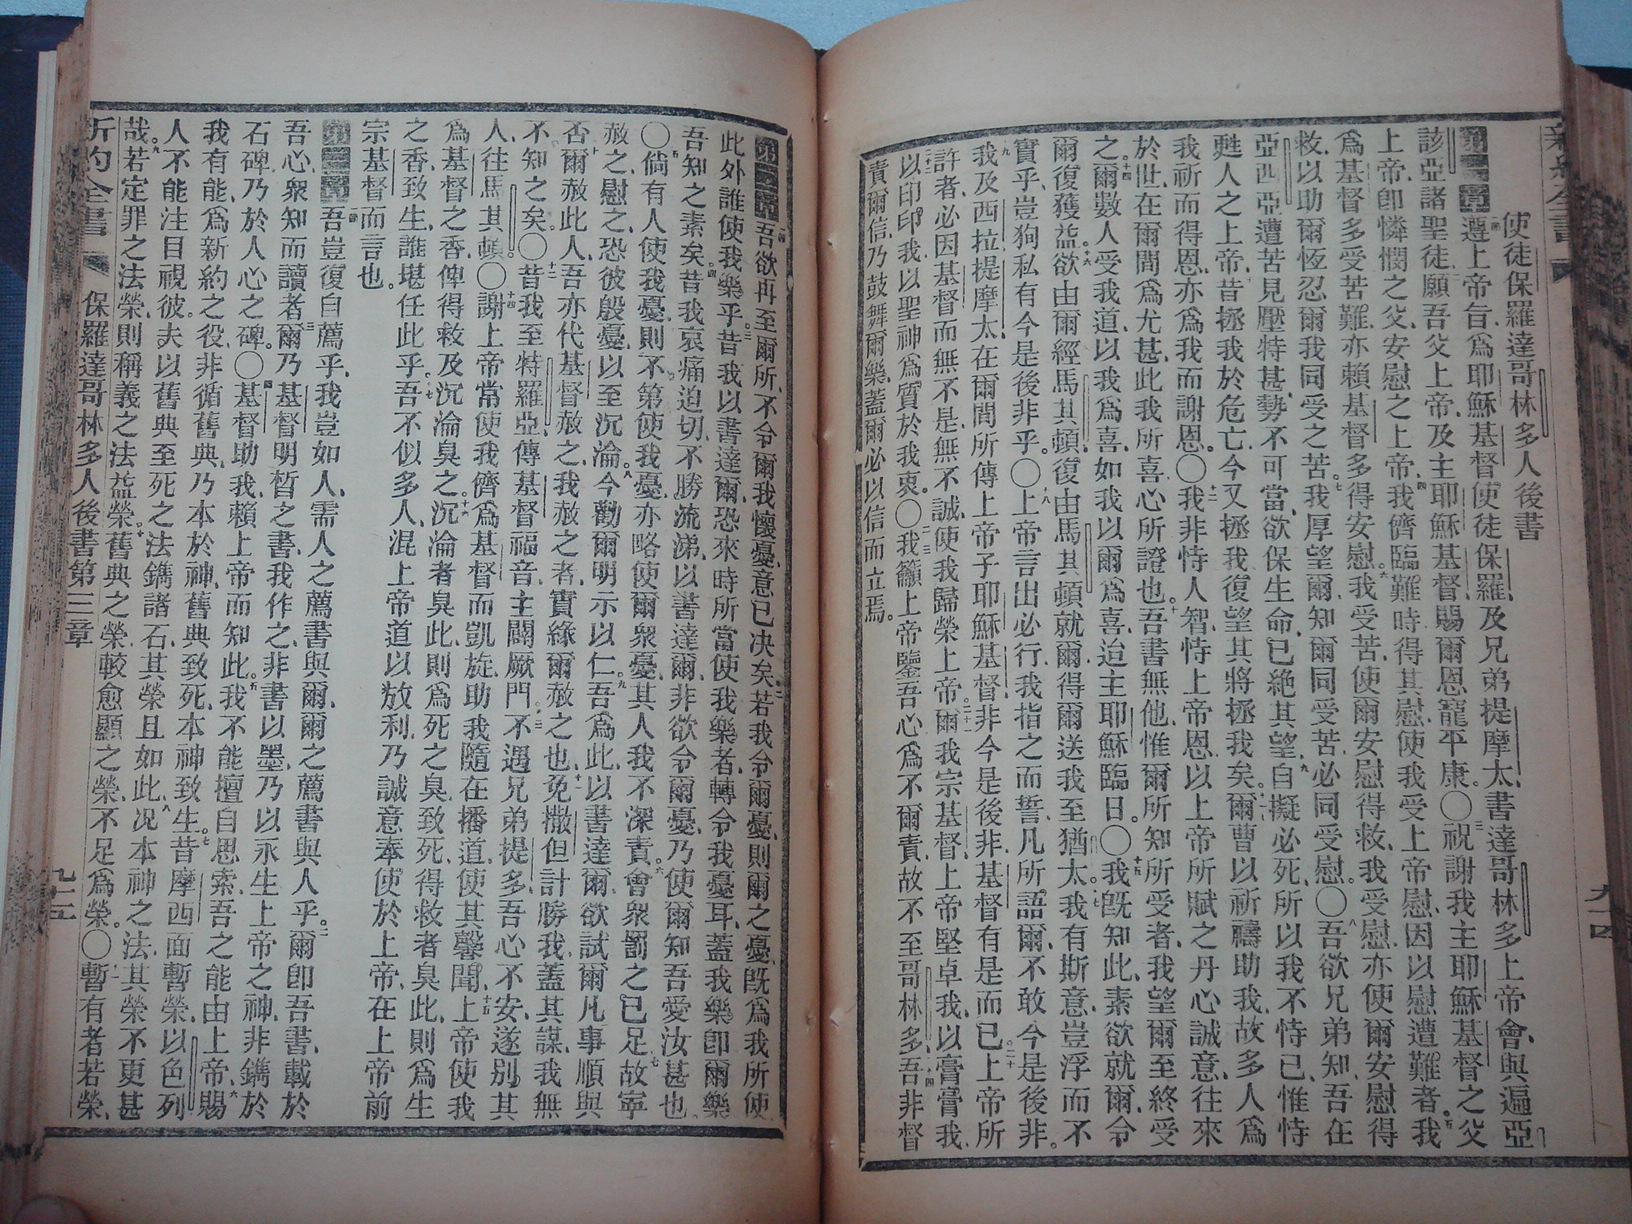 新約全書
九十四
使徒保羅達哥林多人後書
第一章 一遵上帝旨、爲耶穌基督使徒保羅、及兄弟提摩太、書達哥林多上帝會、與遍亞
該亞諸聖徒、二願吾父上帝、及主耶穌基督、賜爾恩寵平康。○三祝謝我主耶穌基督之父
上帝、卽憐憫之父、安慰之上帝、四我儕臨難時、得其慰、使我受上帝慰、因以慰遭難者、五我
爲基督多受苦難、亦賴基督多得安慰。六我受苦、使爾安慰得救、我受慰、亦使爾安慰得
救、以助爾恆忍爾我同受之苦、七我厚望爾、知爾同受苦、必同受慰。○八吾欲兄弟知、吾在
亞西亞遭苦見壓特甚、勢不可當、欲保生命、已絕其望、九自擬必死、所以我不恃己、惟恃
甦人之上帝、十昔拯我於危亡、今又拯我、復望其將拯我矣。十一爾曹以祈禱助我、故多人爲
我祈而得恩、亦爲我而謝恩。○十二我非恃人智、恃上帝恩、以上帝所賦之丹心誠意、往來
於世、在爾間爲尤甚、此我所喜、心所證也。十三吾書無他、惟爾所知所受者、我望爾至終受
之。十四爾數人受我道、以我爲喜、如我以爾爲喜、迨主耶穌臨日。○十五我旣知此、素欲就爾、令
爾復獲益。十六欲由爾經馬其頓、復由馬其頓就爾、得爾送我至猶太。十七我有斯意、豈浮而不
實乎、豈狥私有今是後非乎。○十八上帝言出必行、我指之而誓、凡所語爾、不敢今是後非。
十九我及西拉提摩太、在爾間所傳上帝子耶穌基督、非今是後非、基督有是而已。二十上帝所
許者、必因基督而無不是、無不誠、使我歸榮上帝。二十一爾我宗基督、上帝堅卓我、以膏膏我、
二十二以印印我、以聖神爲質於我衷。○二十三我籲上帝鑒吾心、爲不爾責、故不至哥林多、二十四吾非督
責爾信、乃鼓舞爾樂、蓋爾必以信而立焉。
第二章 一吾欲再至爾所、不令爾我懷憂、意已决矣、二若我令爾憂、則爾之憂、旣爲我所使、
此外誰使我樂乎。三昔我以書達爾、恐來時所當使我樂者、轉令我憂耳、蓋我樂卽爾樂、
吾知之素矣。四昔我哀痛迫切、不勝流涕、以書達爾、非欲令爾憂、乃使爾知吾愛汝甚也。
○五倘有人使我憂、則不第使我憂、亦略使爾衆憂、其人我不深責、六會衆罰之已足、七故寧
赦之、慰之、恐彼殷憂、以至沉淪。八今勸爾明示以仁。九吾爲此以書達爾、欲試爾凡事順與
否、十爾赦此人、吾亦代基督赦之、我赦之者、實緣爾赦之也、十一免撒但計勝我、蓋其謀、我無
不知之矣。○十二昔我至特羅亞、傳基督福音、主闢厥門。十三不遇兄弟提多、吾心不安、遂別其
人、往馬其頓。○十四謝上帝常使我儕爲基督而凱旋、助我隨在播道、使其馨聞、十五上帝使我
爲基督之香、俾得救及沉淪臭之。十六沉淪者臭此、則爲死之臭致死、得救者臭此、則爲生
之香、致生、誰堪任此乎。十七吾不似多人、混上帝道以放利、乃誠意奉使於上帝、在上帝前
宗基督而言也。
第三章 一吾豈復自薦乎、我豈如人、需人之薦書與爾、爾之薦書與人乎。二爾卽吾書、載於
吾心、衆知而讀者、三爾乃基督明晢之書、我作之、非書以墨、乃以永生上帝之神、非鐫於
石碑、乃於人心之碑。○四基督助我、賴上帝而知此。五我不能擅自思索、吾之能由上帝賜、六
我有能、爲新約之役、非循舊典、乃本於神、舊典致死、本神致生。七昔摩西面暫榮、以色列
人不能注目視彼、夫以舊典至死之法、鐫諸石、其榮且如此、八况本神之法、其榮不更甚
哉。九若定罪之法榮、則稱義之法益榮。十舊典之榮、較愈顯之榮、不足爲榮。○十一暫有者若榮、
新約全書
保羅達哥林多人後書第三章
九十五